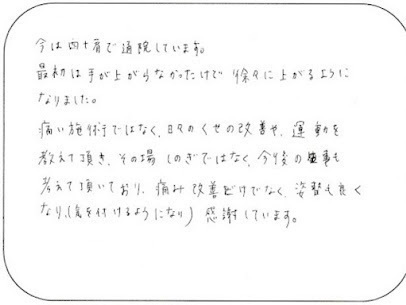 今は四十肩で通院しています。
最初は手が上がらなかったけで 徐々に上がるように
なりました。
痛い施術ではなく、日々のくせの改善や、運動を
教えて頂き、その場しのぎではなく、今後の事も
考えて頂いており、痛み改善だけでなく、姿勢も良く
なり、(気を付けるようになり) 感謝しています。